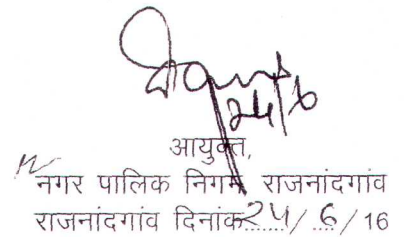 24/6
आयुक्त,
नगर पालिक निगम राजनांदगांव
राजनांदगांव दिनांक 24/ 6 / 16